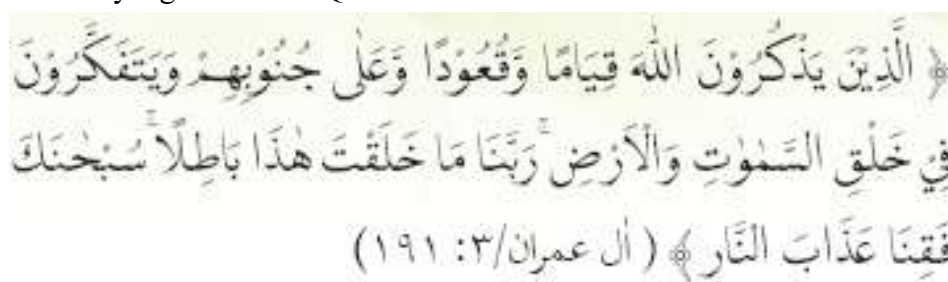 ﴿ الَّذِيْنَ يَذْكُرُوْنَ اللّٰهَ قِيَامًا وَّقُعُوْدًا وَّعَلٰى جُنُوْبِهِمْ وَيَتَفَكَّرُوْنَ
فِيْ خَلْقِ السَّمٰوٰتِ وَالْاَرْضِۚ رَبَّنَا مَا خَلَقْتَ هٰذَا بَاطِلًاۚ سُبْحٰنَكَ
فَقِنَا عَذَابَ النَّارِ ﴾ ( اٰل عمران/٣: ١٩١)